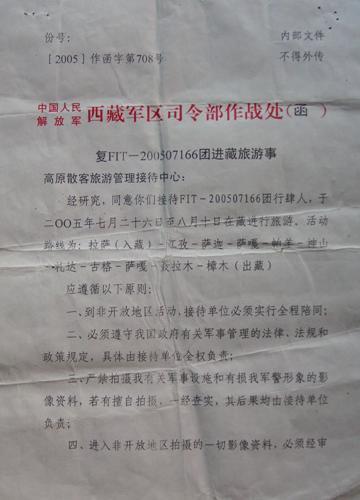 份号： 内部文件
[2005]作函字第708号 不得外传
中国人民解放军 西藏军区司令部作战处（函）
复FIT－200507166团进藏旅游事
高原散客旅游管理接待中心：
经研究，同意你们接待FIT－200507166团行肆人，于
二〇〇五年七月二十六日至八月十日在藏进行旅游。活动
路线为：拉萨（入藏）－江孜－萨迦－萨嘎－帕羊－神山
－札达－古格－萨嘎－聂拉木－樟木（出藏）
应遵循以下原则：
一、到非开放地区活动，接待单位必须实行全程陪同；
二、必须遵守我国政府有关军事管理的法律、法规和
政策规定，具体由接待单位全权负责；
三、严禁拍摄我有关军事设施和有损我军警形象的影
像资料，若有擅自拍摄，一经查实，其后果均由接待单位
负责；
四、进入非开放地区拍摄的一切影像资料，必须经审